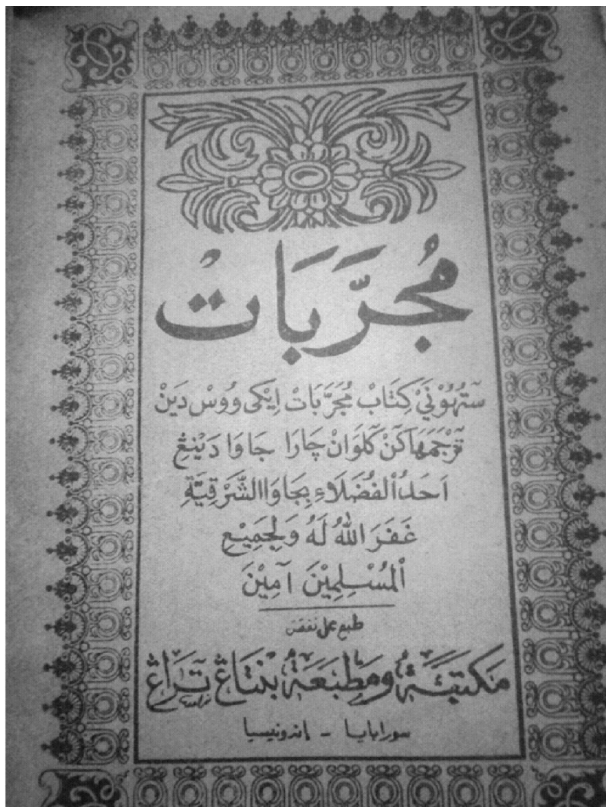 مُجَرَّبَاتْ
ستهوني كِتَابْ مُجَرَّبَاتْ اِيْكَى وُوسْ دَيْنْ
تَرْجَمَهَاكَنْ كَلَوَانْ چَارَا جَاوَا دَيْنِڠْ
اَحَدُ الْفُضَلَاءِ بِجَاوَا الشَّرْقِيَّةِ
غَفَرَ اللهُ لَهُ وَلِجَمِيْعِ
الْمُسْلِمِيْنَ آمِيْنَ
طبع على نفقة
مَكْتَبَةُ وَمَطْبَعَةُ بِنْتَاڠْ تَرَاڠْ
سورابايا - إندونيسيا